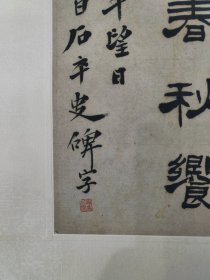 春秋饗
年望日
石卒史碑字